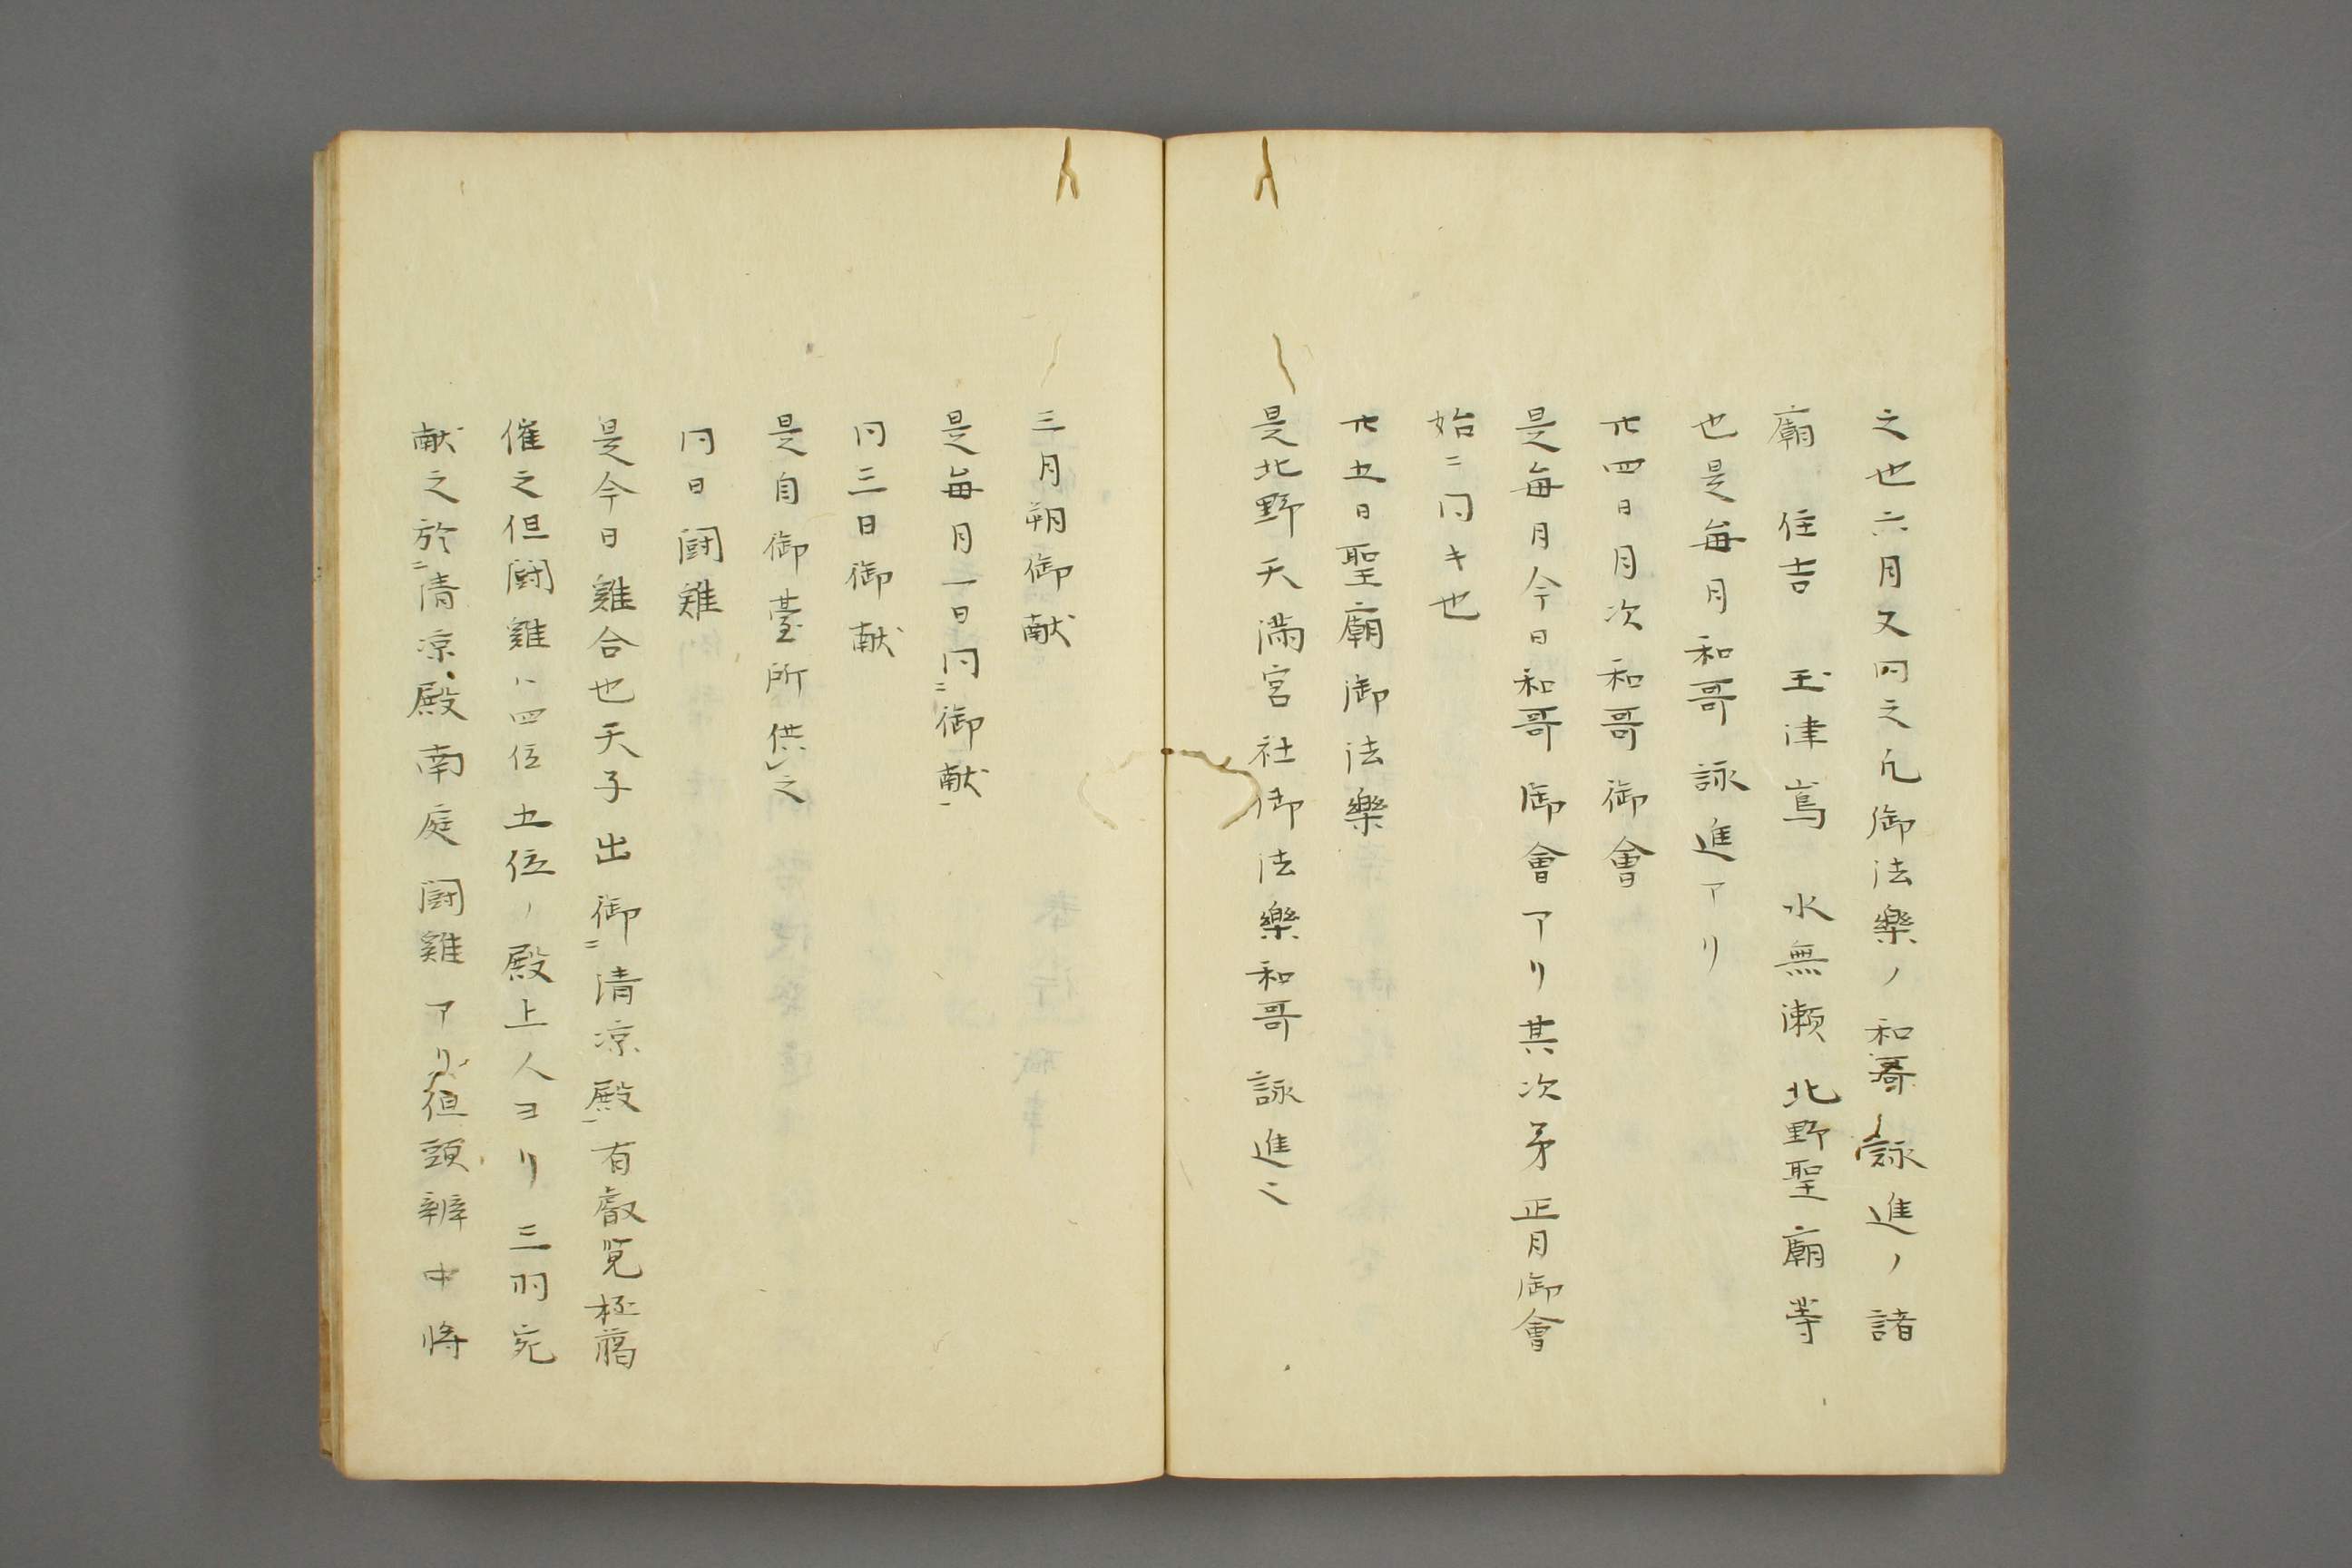 之也六月又同之凡御法樂ノ和哥詠進ノ諸
廟 住吉 玉津嶌 水無瀬 北野聖廟等
也是毎月和哥詠進アリ
廿四日月次和哥御會
是毎月今日和哥御會アリ其次第正月御會
始ニ同キ也
廿五日聖廟御法樂
是北野天満宮社御法樂和哥詠進之
三月朔御献
是毎月一日同ニ御献一
同三日御献
是自御臺所供レ之
同日闘雞
是今日雞合也天子出御ニ清凉殿一有叡覧極﨟
催之但闘雞ハ四位五位ノ殿上人ヨリ三羽宛
献之於ニ清凉殿南庭闘雞アリ但頭辨中将